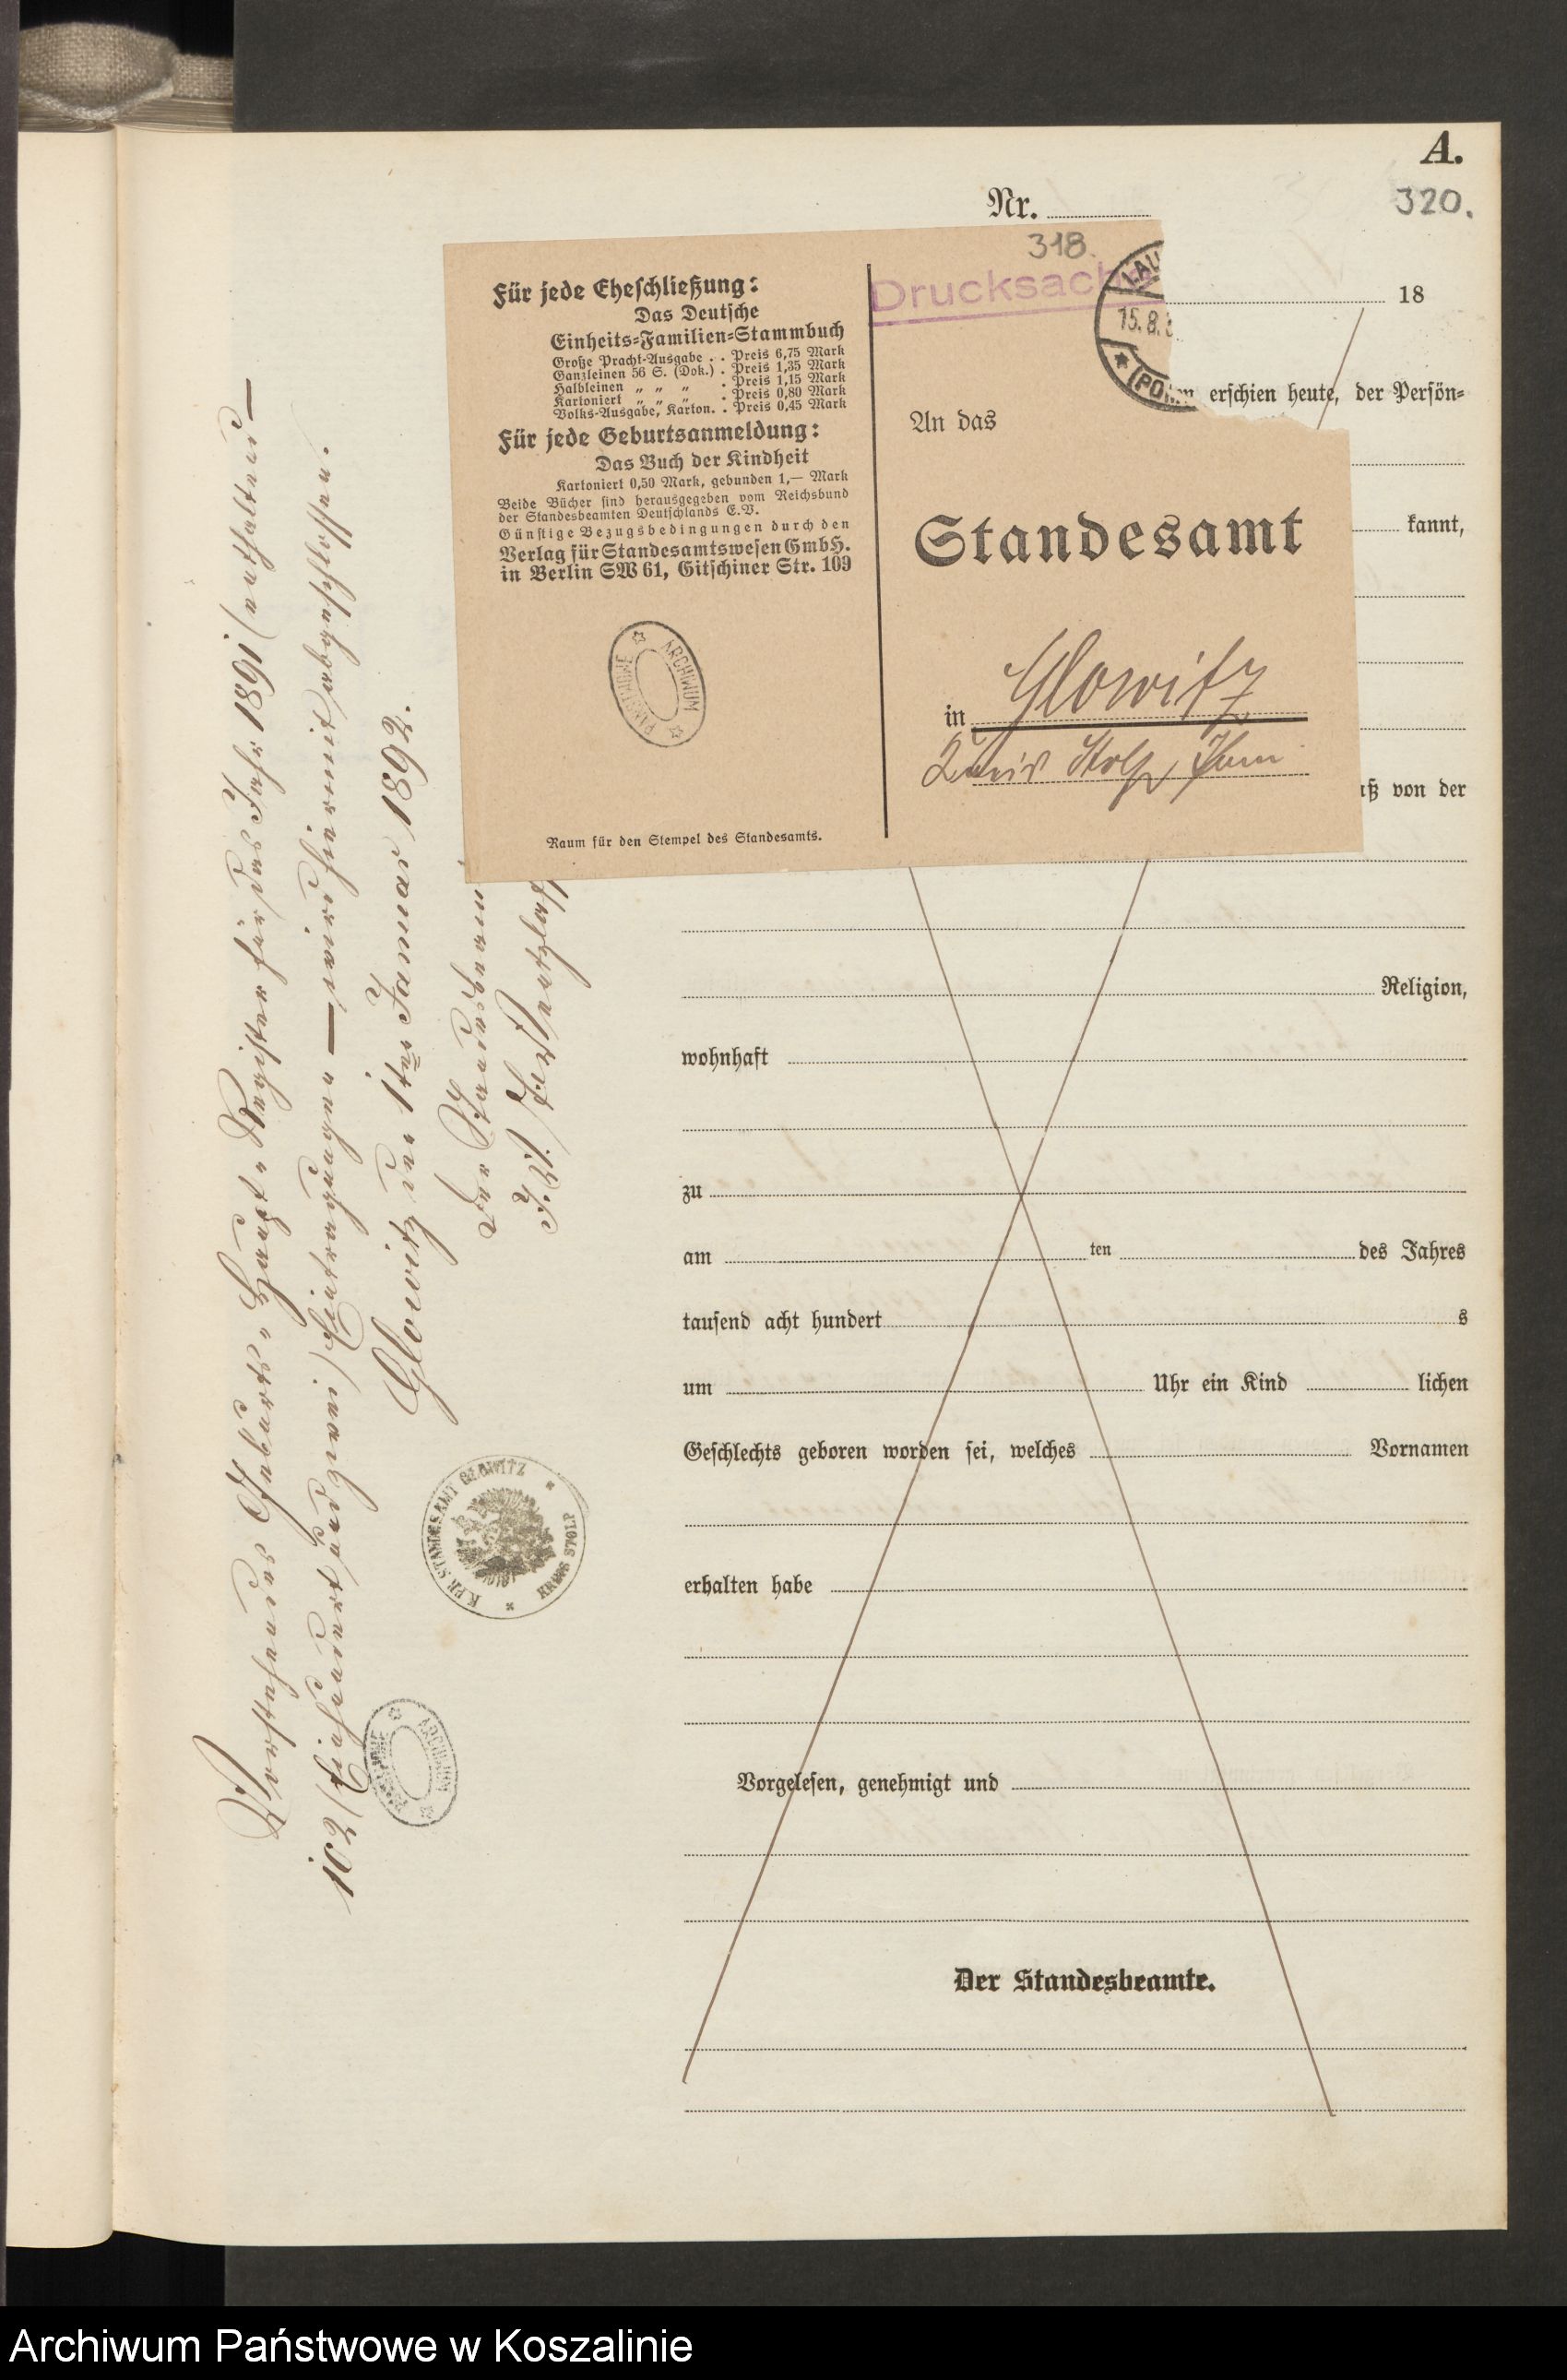 A.
320.
Nr.
318.
Drucksach
LAU
15.8.
(PO
18
Für jede Eheschließung:
Das Deutsche
Einheits-Familien-Stammbuch
Große Pracht-Ausgabe . . Preis 6,75 Mark
Ganzleinen 56 S. (Dok.) . Preis 1,35 Mark
Halbleinen „ „ „ . Preis 1,15 Mark
Kartoniert „ „ „ . Preis 0,80 Mark
Volks-Ausgabe, Karton. . Preis 0,45 Mark
Für jede Geburtsanmeldung:
Das Buch der Kindheit
Kartoniert 0,50 Mark, gebunden 1,— Mark
Beide Bücher sind herausgegeben vom Reichsbund
der Standesbeamten Deutschlands E.V.
Günstige Bezugsbedingungen durch den
Verlag für Standesamtswesen GmbH.
in Berlin SW 61, Gitschiner Str. 109
ARCHIWUM PAŃSTWOWE
Raum für den Stempel des Standesamts.
An das
Standesamt
in Glowitz
Kreis Stolp, Pom
en erschien heute, der Persön-
kannt,
aß von der
Religion,
wohnhaft
zu
am ten des Jahres
tausend acht hundert s
um Uhr ein Kind lichen
Geschlechts geboren worden sei, welches Vornamen
erhalten habe
Vorgelesen, genehmigt und
Der Standesbeamte.
Vorstehendes Geburts-Haupt-Register für das Jahr 1891 (enthaltend —
102 (Einhundert und zwei) Eintragungen — wird hiermit abgeschlossen.
Glowitz den 1ten Januar 1892.
Der Standesbeam
K. PR. STANDESAMT GLOWITZ
KREIS STOLP
ARCHIWUM PAŃSTWOWE
Archiwum Państwowe w Koszalinie